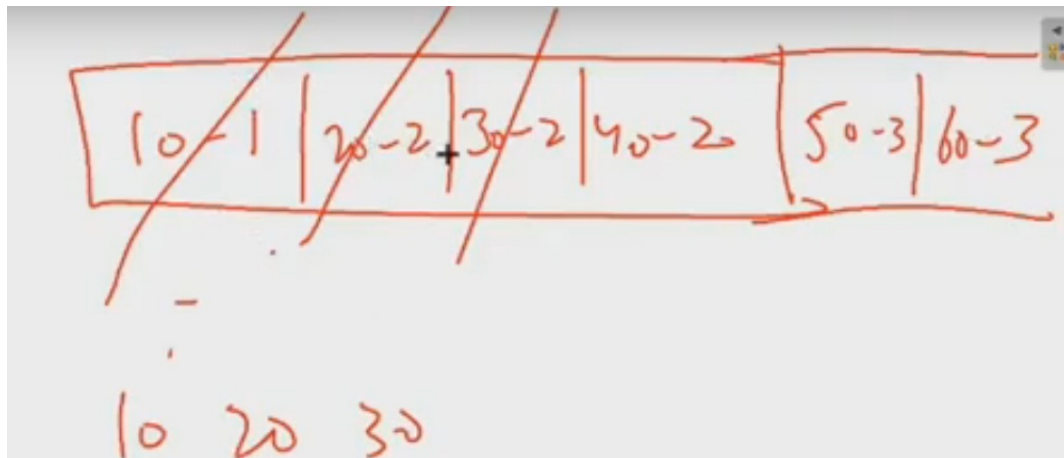 10-1 | 20-2 | 30-2 | 40-2 | 50-3 | 60-3
10 20 30